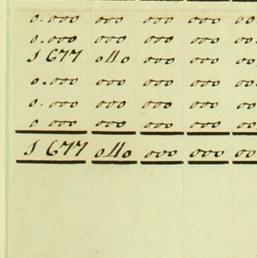 0.000 000 000 000 00
0.000 000 000 000 00
1 677 040 000 000 00
0.000 000 000 000 00
0.000 000 000 000 00
0 000 000 000 000 00
1 677 040 000 000 00